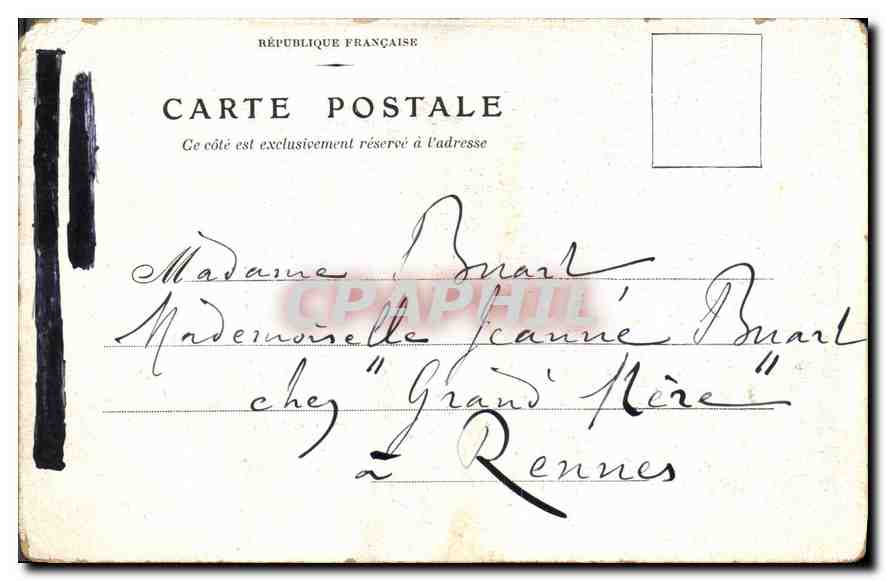 RÉPUBLIQUE FRANÇAISE
CARTE POSTALE
Ce côté est exclusivement réservé à l'adresse
Madame Buart
CPAPHIL
Mademoiselle Jeanne Buart
chez "Grand Mère"
à Rennes